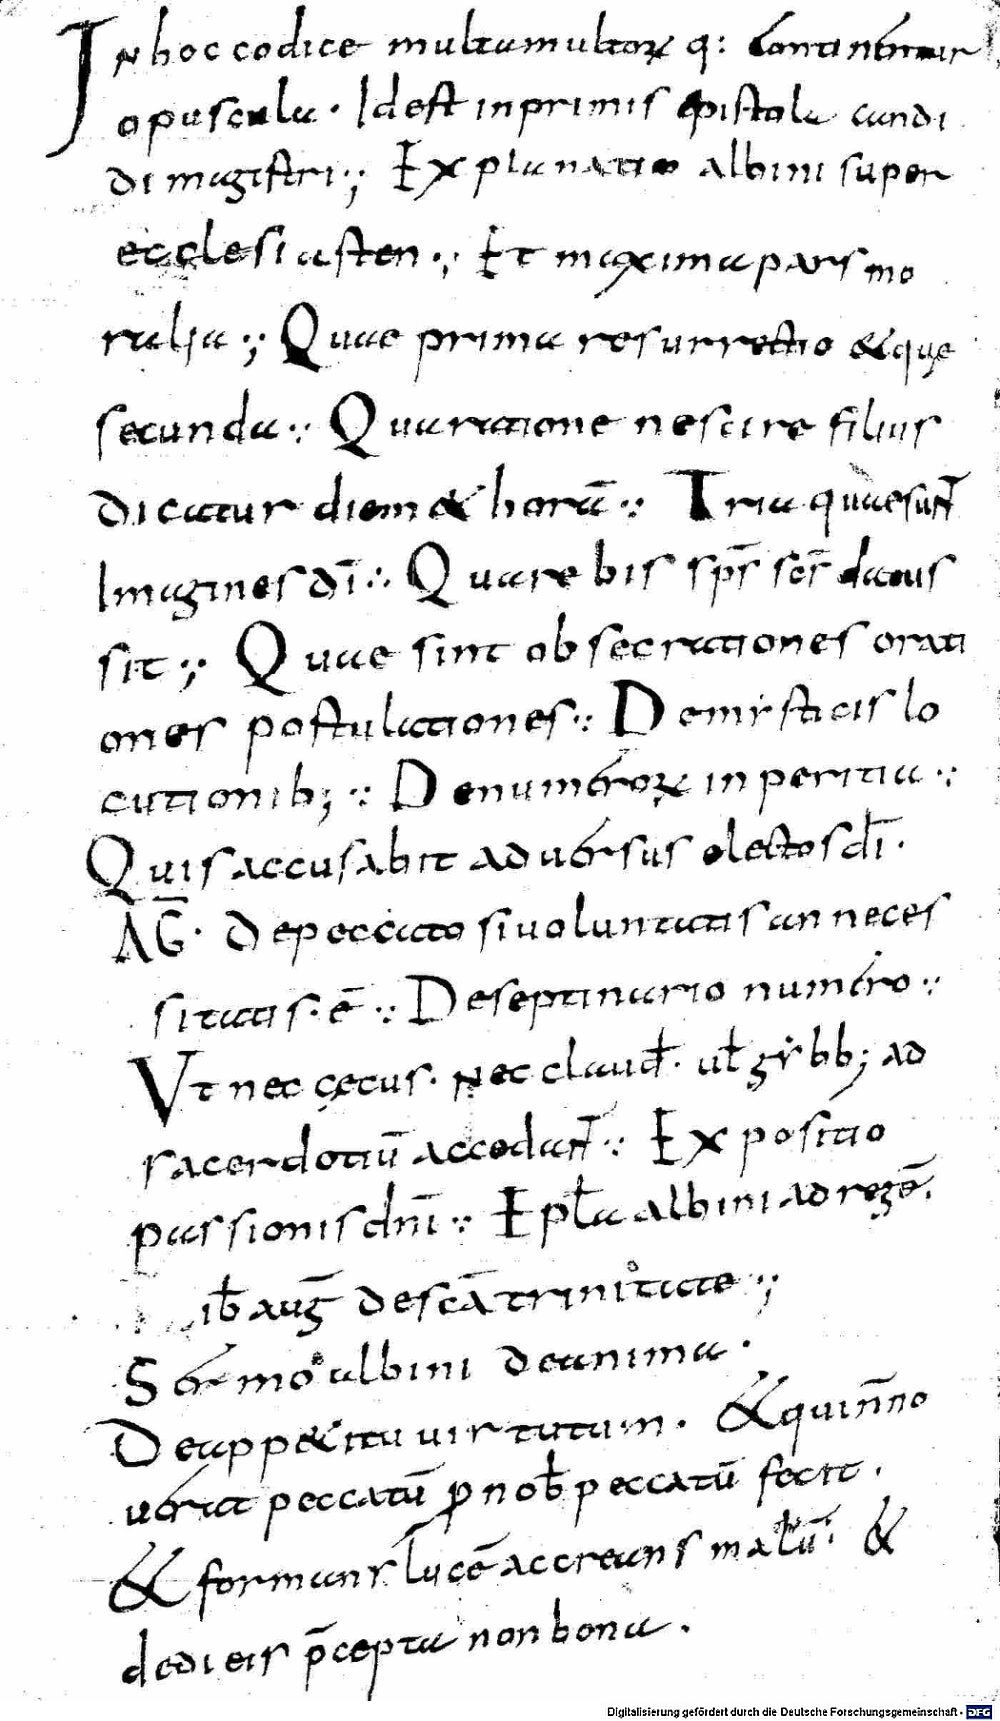 IN hoc codice multa multorꝝ q: continentur
opuscula · Id est inprimis epistola candi
di magistri ·,· Explanatio albini super
ecclesiasten ·,· Et maxima pars mo
ralia ·,· Quae prima resurrectio & que
secunda ·.· Qua ratione nescire filius
dicatur diem & horā ·.· Tria quae sunt
Imagines dī ·.· Quare bis sp̄s sc̄s datus
sit ·,· Quae sint obsecrationes orati
ones postulationes ·.· De mysticis lo
cutionib; ·.· De numerorꝝ inperitia ·.·
Quis accusabit adversus electos dī ·
AḠ · De peccato si voluntatis an neces
sitatis · ē ·.· De septinario numero ·.·
Ut nec cęcus · Nec claud̄ · ul̄ gybb; ad
sacerdotiū accedant ·.· Expositio
passionis dn̄i ·.· Epl̄a albini ad regē ·
ib̄ auḡ de sc̄a trinitate ·,·
Sermo albini de anima ·
De appetitu virtutum · & qui n̄ no
verat peccatū ꝓ nob̄ peccatū fecit ·
& formans lucē ac creans malū · &
dedi eis p̄cepta non bona ·
Digitalisierung gefördert durch die Deutsche Forschungsgemeinschaft - DFG